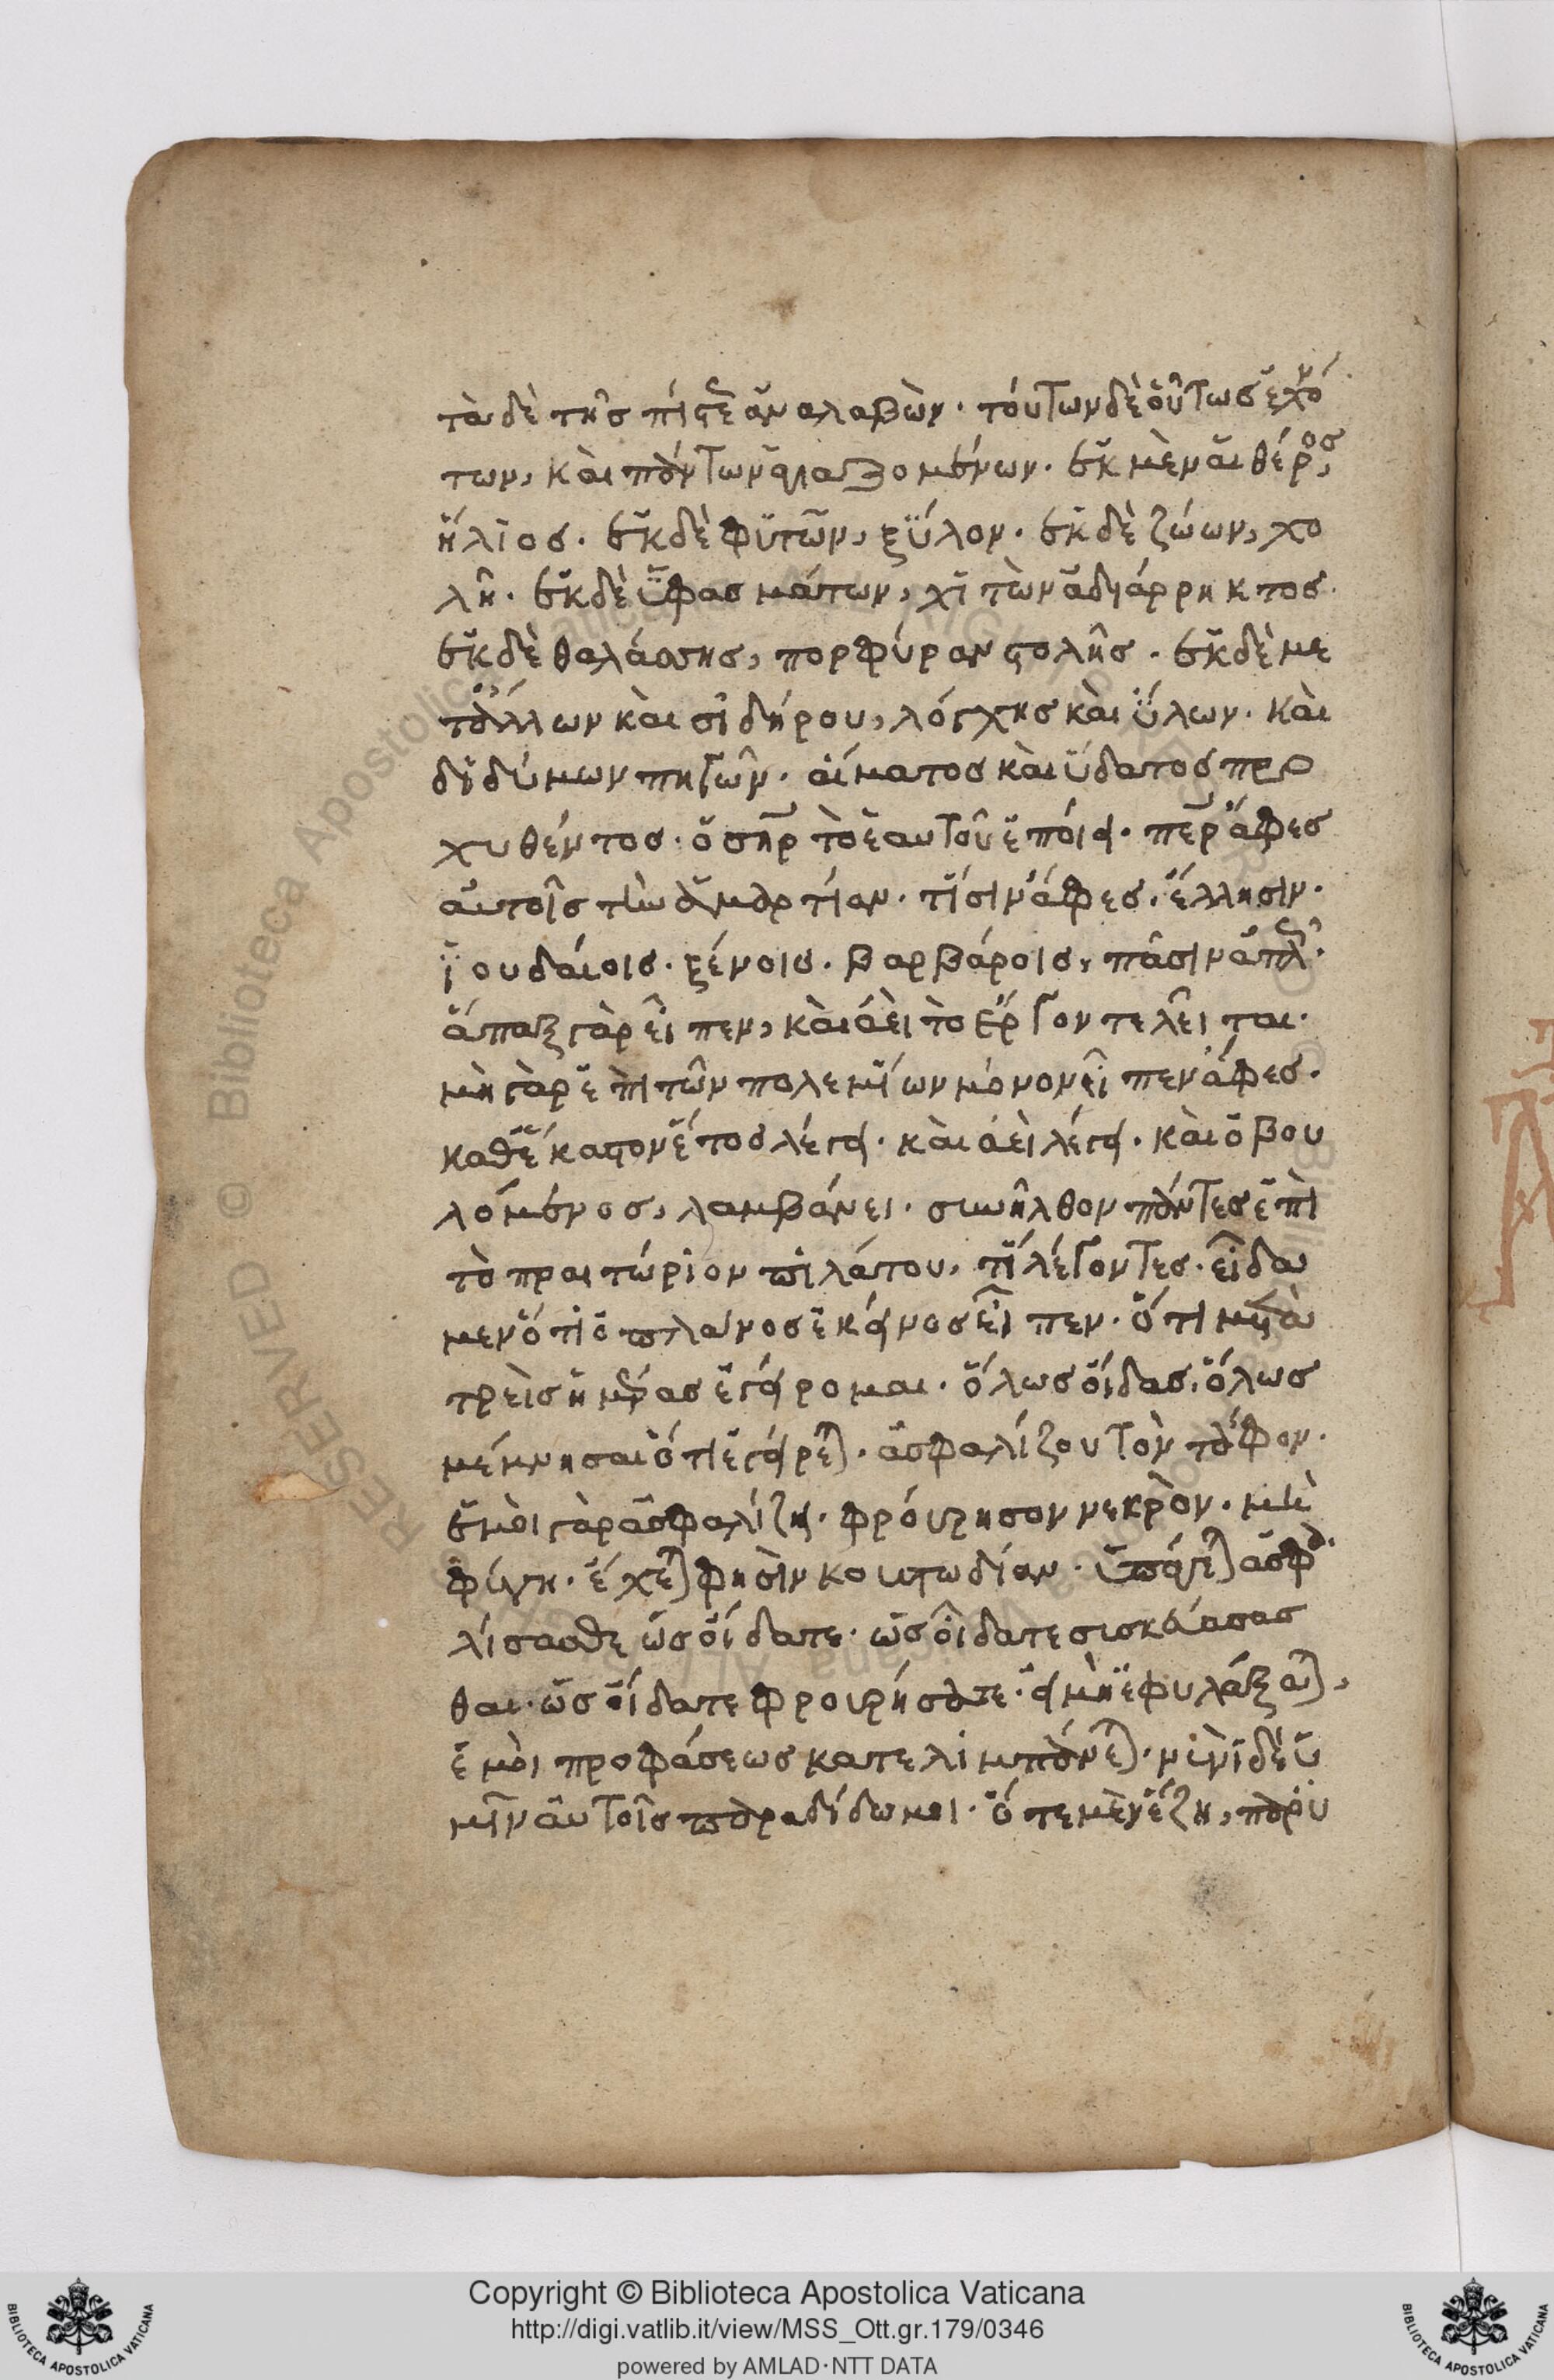 τὰ δὲ τῆς πίστεως ἀναλαβών. τούτων δὲ οὕτως ἐχόν
των, καὶ πάντων ἁγιαζομένων. ἐκ μὲν αἰθέρος,
ἥλιος. ἐκ δὲ φυτῶν, ξύλον. ἐκ δὲ ζώων, χο
λή. ἐκ δὲ ὑφασμάτων, χιτὼν ἀδιάρρηκτος.
ἐκ δὲ θαλάσσης, πορφύραν στολῆς. ἐκ δὲ με
τάλλων καὶ σιδήρου, λόγχης καὶ ὕλων. καὶ
διδύμων πηγῶν. αἵματος καὶ ὕδατος προ
χυθέντος. ὁ σὴρ τὸ ἑαυτοῦ ἐποίει. περ ἄφες
αὐτοῖς τὴν ἁμαρτίαν. τίσιν ἄφες. ἕλλησιν.
ἰουδαίοις. ξένοις. βαρβάροις, πᾶσιν ἁπλῶς.
ἅπαξ γὰρ εἶπεν, καὶ ἀεὶ τὸ ἔργον τελεῖται.
μὴ γὰρ ἐπὶ τῶν πολεμίων μόνον εἶπεν ἄφες.
καθ' ἕκαστον ἔτος λέγει. καὶ ἀεὶ λέγει. καὶ ὁ βου
λόμενος, λαμβάνει. συνῆλθον πάντες ἐπὶ
τὸ πραιτώριον πιλάτου, τί λέγοντες. εἴδα
μεν ὅτι ὁ πλάνος ἐκεῖνος εἶπεν. ὅτι μετὰ
τρεῖς ἡμέρας ἐγείρομαι. ὅλως οἶδας. ὅλως
μέμνησαι ὅτι ἐγείρεται. ἀσφαλίζου τὸν τάφον.
ἐμοὶ γὰρ ἀσφαλίζῃ. φρούρησον νεκρόν. μὴ
φύγῃ. ἔχετε φησὶν κουστωδίαν. ὑπάγετε ἀσφα
λίσασθε ὡς οἴδατε. ὡς οἴδατε συσκιάσας
θαι. ὡς οἴδατε φρουρήσατε. εἰ μὴ ἐφυλάξατε,
ἐμοὶ προφάσεως κατελιμπάνετε. νυνὶ δὲ ὑ
μῖν αὐτοῖς παραδίδωμι. ὅτε μὲν ἔζη, παρ' ὑ
Copyright © Biblioteca Apostolica Vaticana
http://digi.vatlib.it/view/MSS_Ott.gr.179/0346
powered by AMLAD·NTT DATA